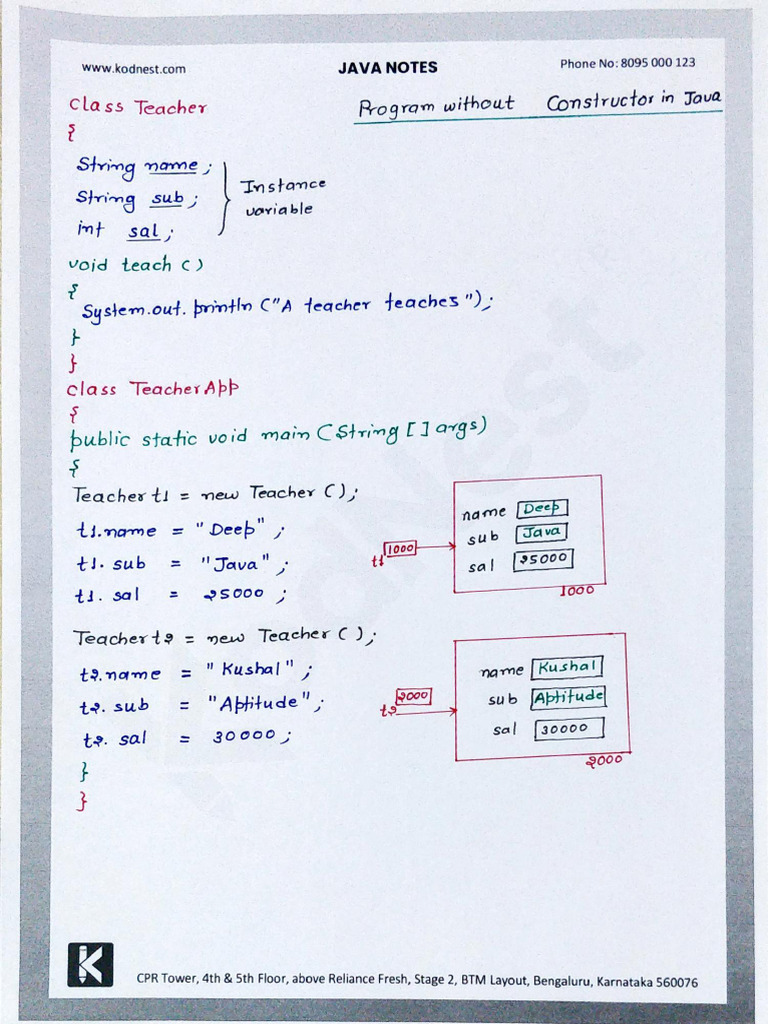 www.kodnest.com
JAVA NOTES
Phone No: 8095 000 123
Program without Constructor in Java
class Teacher
{
String name;
String sub;
int sal;
Instance
variable
void teach ()
{
System.out.println ("A teacher teaches");
}
}
class TeacherApp
{
public static void main (String [] args)
{
Teacher t1 = new Teacher ();
t1.name = "Deep";
t1. sub = "Java";
t1. sal = 25000;
t1
1000
name Deep
sub Java
sal 25000
1000
Teacher t2 = new Teacher ();
t2.name = "Kushal";
t2. sub = "Aptitude";
t2. sal = 30000;
t2
2000
name Kushal
sub Aptitude
sal 30000
2000
}
}
KodNest
K
CPR Tower, 4th & 5th Floor, above Reliance Fresh, Stage 2, BTM Layout, Bengaluru, Karnataka 560076